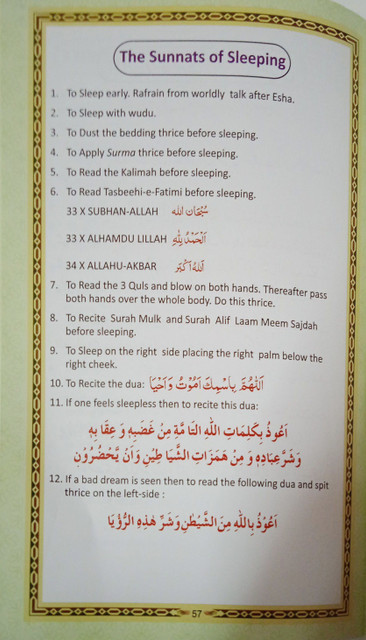 The Sunnats of Sleeping
1. To Sleep early. Rafrain from worldly talk after Esha.
2. To Sleep with wudu.
3. To Dust the bedding thrice before sleeping.
4. To Apply Surma thrice before sleeping.
5. To Read the Kalimah before sleeping.
6. To Read Tasbeehi-e-Fatimi before sleeping.
33 X SUBHAN-ALLAH سُبْحَانَ اللّٰه
33 X ALHAMDU LILLAH اَلْحَمْدُ لِلّٰهِ
34 X ALLAHU-AKBAR اَللّٰهُ اَكْبَرُ
7. To Read the 3 Quls and blow on both hands. Thereafter pass
both hands over the whole body. Do this thrice.
8. To Recite Surah Mulk and Surah Alif Laam Meem Sajdah
before sleeping.
9. To Sleep on the right side placing the right palm below the
right cheek.
10. To Recite the dua: اَللّٰهُمَّ بِاسْمِكَ اَمُوْتُ وَ اَحْيَا
11. If one feels sleepless then to recite this dua:
اَعُوْذُ بِكَلِمَاتِ اللّٰهِ التَّا مَّةِ مِنْ غَضَبِهٖ وَ عِقَا بِهٖ
وَشَرِّ عِبَادِهٖ وَ مِنْ هَمَزَاتِ الشَّيَا طِيْنِ وَاَنْ يَّحْضُرُوْنِ
12. If a bad dream is seen then to read the following dua and spit
thrice on the left-side :
اَعُوْذُ بِاللّٰهِ مِنَ الشَّيْطٰنِ وَشَرِّ هٰذِهِ الرُّؤْيَا
57